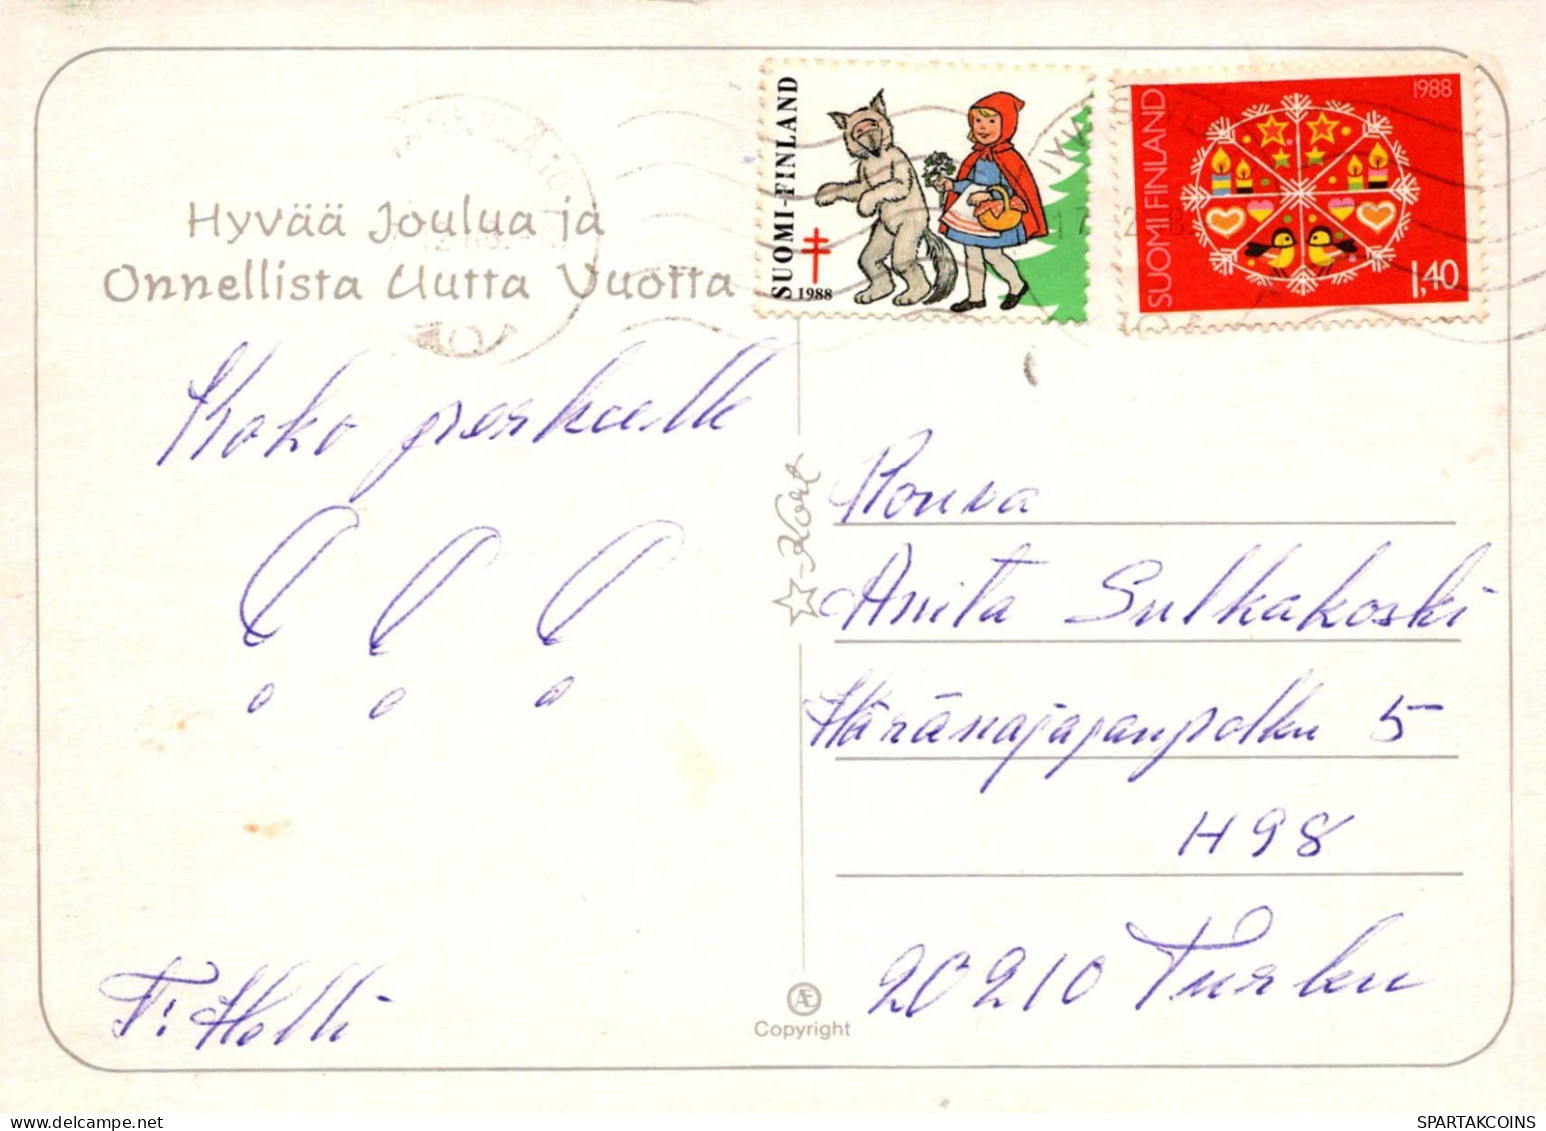 Hyvää Joulua ja
Onnellista Uutta Vuotta
Koko perheelle
! ! !
T: Helli
SUOMI-FINLAND
1988
SUOMI FINLAND
1988
1,40
☆-Kort
Æ
Copyright
Rouva
Anita Sulkakoski
Häränajajanpolku 5
H 98
20210 Turku
SPARTAKCOINS